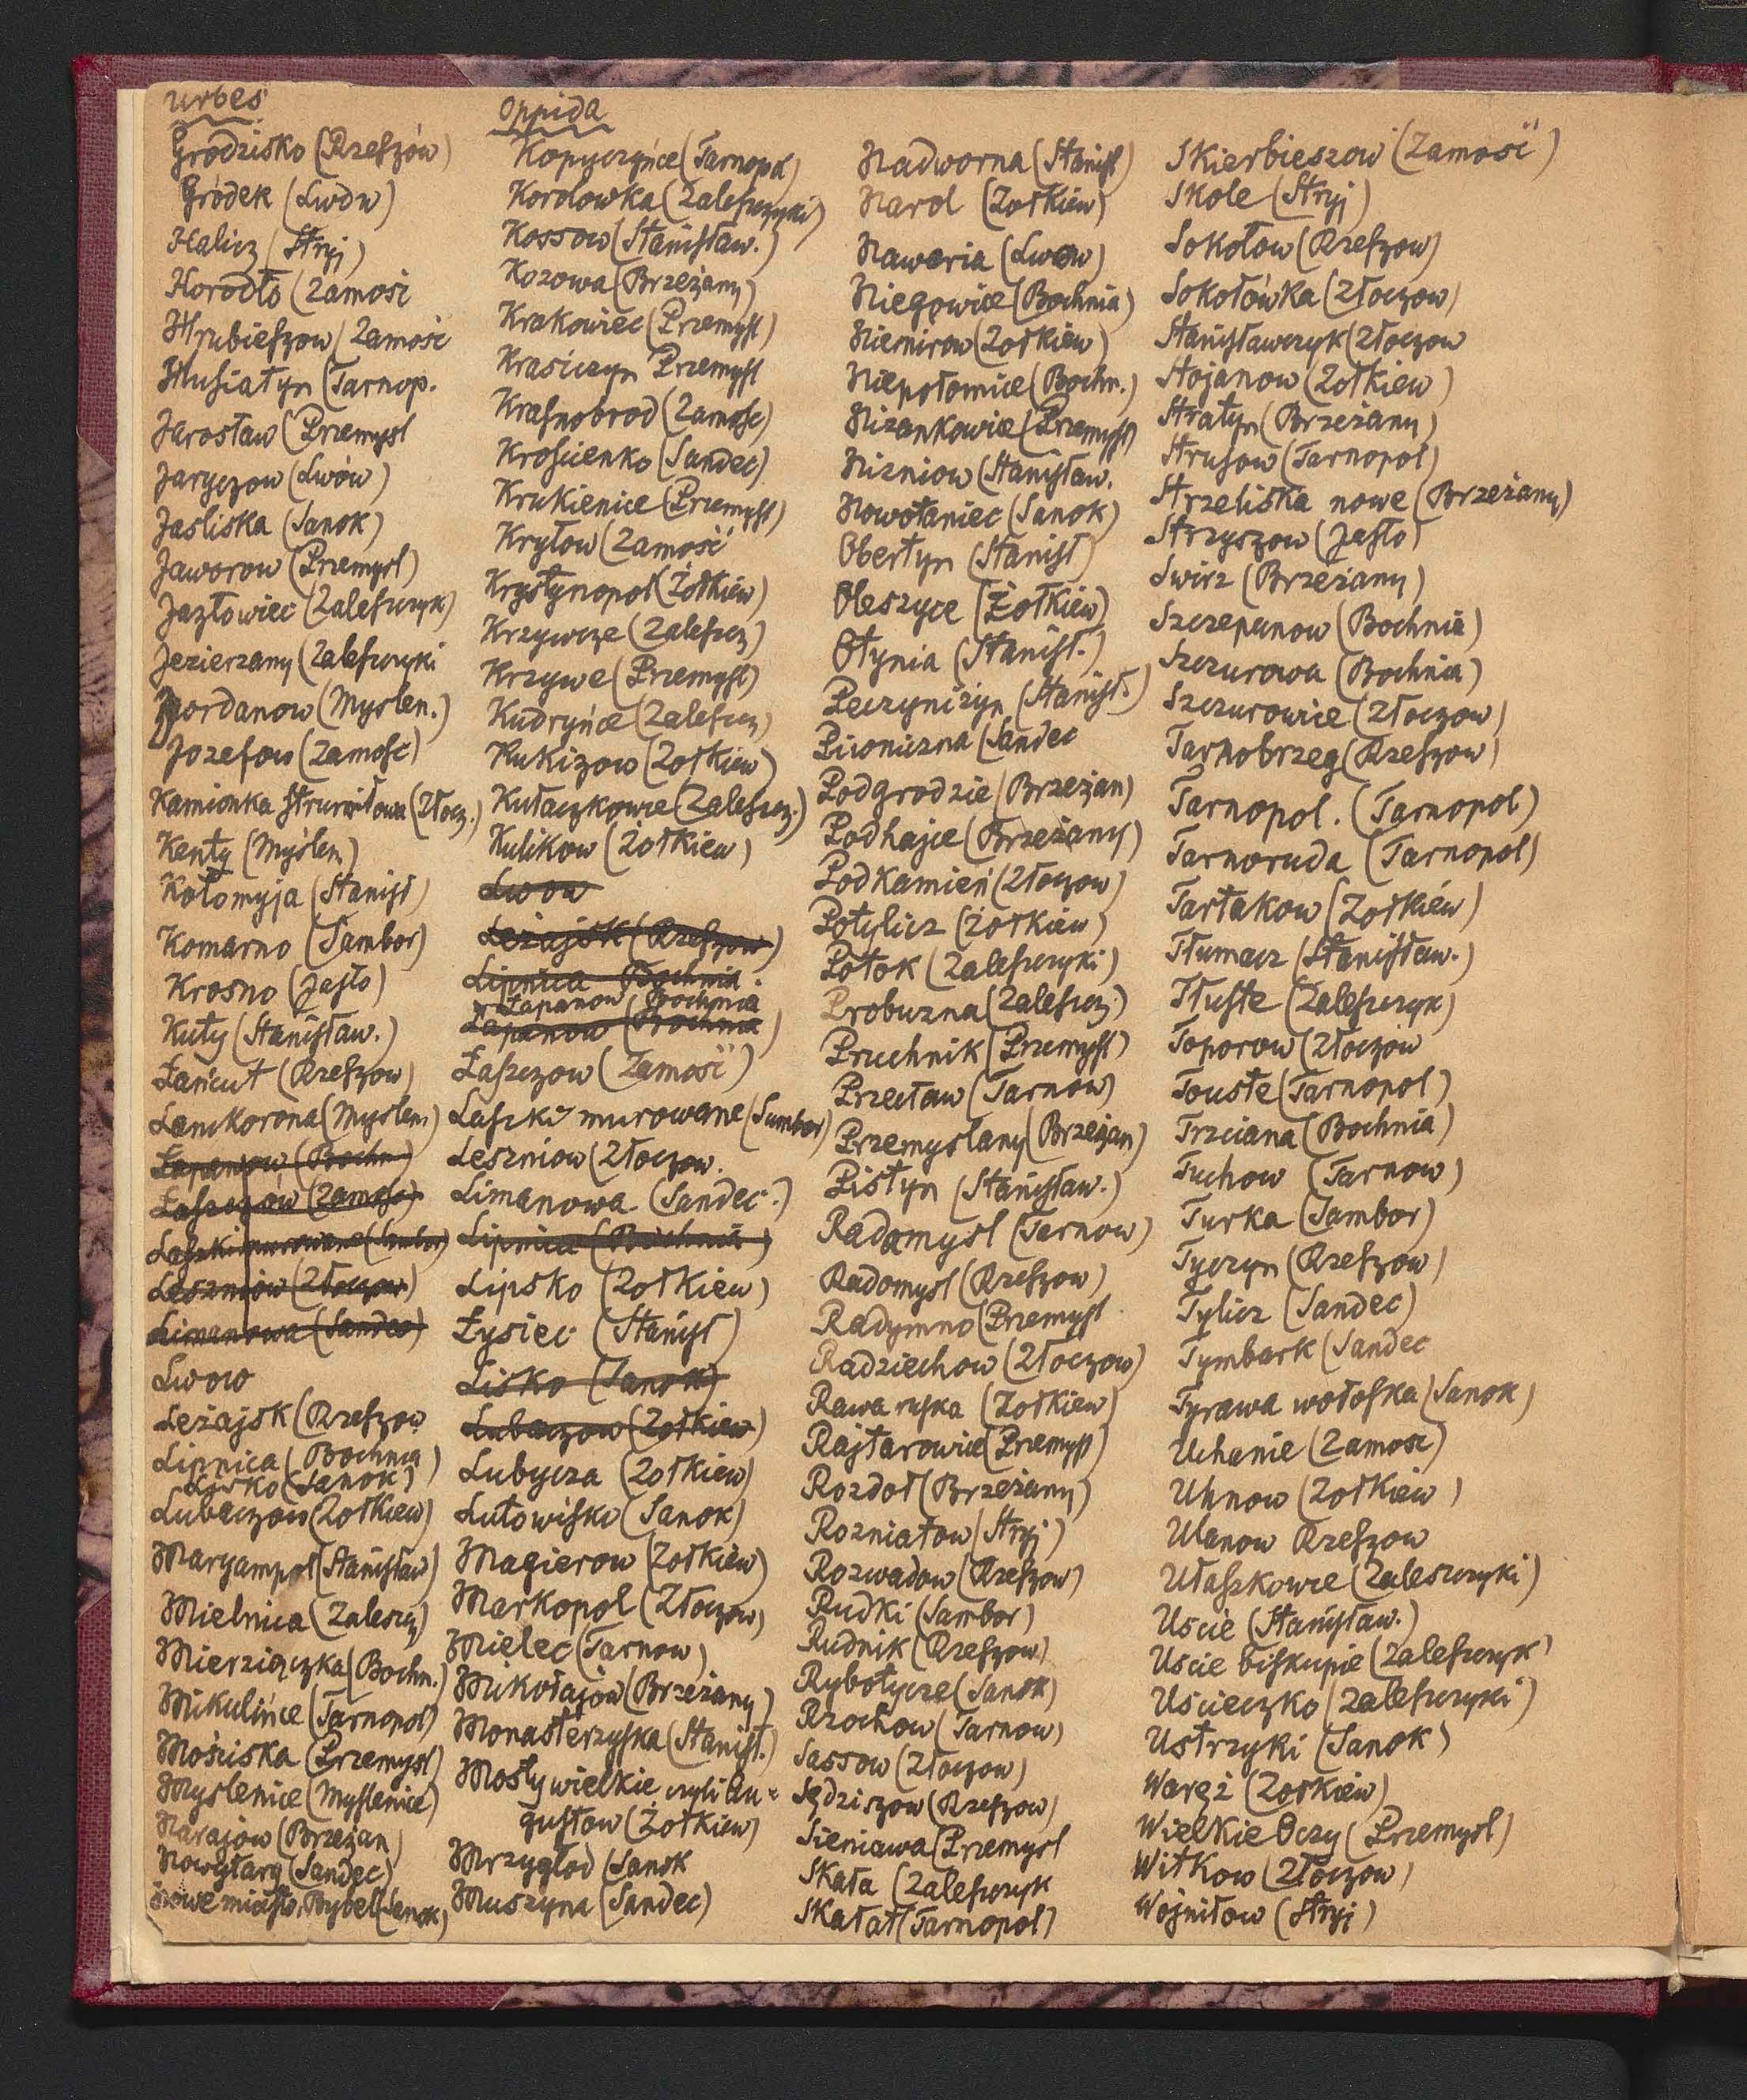 Urbes
Grodzisko (Rzeszów)
Gródek (Lwów)
Halicz (Stryj)
Horodło (Zamość
Hrubieszow (Zamość
Husiatyn (Tarnop.
Jarosław (Przemysl
Jaryczow (Lwów)
Jasliska (Sanok)
Jaworow (Przemysl)
Jazłowiec (Zaleszczyk)
Jezierzany (Zaleszczyki
Jordanow (Myslen.)
Jozefow (Zamość)
Kamionka Strumiłowa (Złocz.)
Kenty (Myślen)
Kołomyja (Stanisł)
Komarno (Sambor)
Krosno (Jasło)
Kuty (Stanisław.)
Łańcut (Rzeszow)
Lanckorona (Myslen)
Łapanow (Bochn)
Łaszczów (Zamość)
Laszki murowane (Sambor)
Leszniow (Złoczow)
Limanowa (Sandec)
Lwow
Leżajsk (Rzeszow
Lipnica (Bochnia)
Lisko (Sanok)
Lubaczow (Zołkiew)
Maryampol (Stanisław)
Mielnica (Zaleszcz)
Mierziączka (Bochn.)
Mikulińce (Tarnopol)
Mościska (Przemysl)
Myslenice (Myslenice)
Narajow (Brzeżan)
Nowytarg (Sandec)
Nowe miasto, Rybot (Sanok)
Oppida
Kopyczyńce (Tarnopol)
Korolowka (Zaleszczyki)
Kossow (Stanisław.)
Kozowa (Brzeżany)
Krakowiec (Przemysl)
Krasiczyn Przemysl
Krasnobrod (Zamosc)
Krościenko (Sandec)
Krukienice (Przemysl)
Kryłow (Zamość
Krystynopol (Żołkiew)
Krzywcze (Zaleszcz)
Krzywe (Przemysl)
Kudryńce (Zaleszcz)
Kukizow (Zołkiew)
Kułaczkowce (Zaleszcz.)
Kulikow (Żołkiew)
Lwow
Leżajsk (Rzeszow)
Lipnica Bochnia
Łapanow (Bochnia
Łapanow (Bochnia)
Łaszczow (Zamość)
Laszki murowane (Sambor)
Leszniow (Złoczow.
Limanowa (Sandec.)
Lipnica (Bochnia)
Lipsko (Zołkiew)
Łysiec (Stanisł)
Lisko (Sanok)
Lubaczow (Zołkiew)
Lubycza (Zołkiew)
Lutowisko (Sanok)
Magierow (Zołkiew)
Markopol (Złoczow)
Mielec (Tarnow)
Mikołajow (Brzeżany)
Monasterzyska (Stanisł.)
Mosty wielkie czyli Au=
gustow (Żołkiew)
Mrzygłod (Sanok
Muszyna (Sandec)
Nadworna (Stanisł)
Narol (Zołkiew)
Nawaria (Lwow)
Niegowice (Bochnia)
Niemirow (Zołkiew)
Niepołomice (Bochn.)
Nizankowice (Przemysl)
Nizniow (Stanisław.
Nowotaniec (Sanok)
Obertyn (Stanisł)
Oleszyce (Żołkiew)
Otynia (Stanisł.)
Peczyniżyn (Stanisł.)
Piwniczna (Sandec
Podgrodzie (Brzeżan)
Podhajce (Brzeżany)
Podkamień (Złoczow)
Potylicz (Żołkiew)
Potok (Zaleszczyki)
Probuzna (Zaleszcz.)
Pruchnik (Przemysl)
Przecław (Tarnow)
Przemyslany (Brzeżan)
Pistyn (Stanisław.)
Radamysl (Tarnow)
Radomysl (Rzeszow)
Radymno (Przemysl
Radziechow (Złoczow)
Rawa ruska (Zołkiew)
Rajtarowice (Przemysl)
Rozdoł (Brzeżany)
Rozniatow (Stryj)
Rozwadow (Rzeszow)
Rudki (Sambor)
Rudnik (Rzeszow)
Rybotycze (Sanok)
Rzochow (Tarnow)
Sassow (Złoczow)
Sędziszow (Rzeszow)
Sieniawa (Przemysl
Skała (Zaleszczyk
Skałat (Tarnopol)
Skierbieszow (Zamość)
Skole (Stryj)
Sokołow (Rzeszow)
Sokołówka (Złoczow)
Stanisławczyk (Złoczow
Stojanow (Zołkiew)
Stratyn (Brzeżany)
Strusow (Tarnopol)
Strzeliska nowe (Brzeżany)
Strzyszow (Jasło)
Swirz (Brzeżany)
Szczepanow (Bochnia)
Szczurowa (Bochnia)
Szczurowice (Złoczow)
Tarnobrzeg (Rzeszow)
Tarnopol. (Tarnopol)
Tarnoruda (Tarnopol)
Tartakow (Zołkiew)
Tłumacz (Stanisław.)
Tłuste (Zaleszczyk)
Toporow (Złoczow
Touste (Tarnopol)
Trzciana (Bochnia)
Tuchow (Tarnow)
Turka (Sambor)
Tyczyn (Rzeszow)
Tylicz (Sandec)
Tymbark (Sandec
Tyrawa wołoska (Sanok)
Uchanie (Zamosc)
Uhnow (Zołkiew)
Ulanow Rzeszow
Ułaszkowce (Zaleszczyki)
Uscie (Stanisław.)
Uscie biskupie (Zaleszczyk)
Uscieczko (Zaleszczyki)
Ustrzyki (Sanok)
Waręż (Zołkiew)
Wielkie Oczy (Przemysl)
Witkow (Złoczow)
Wojniłow (Stryj)